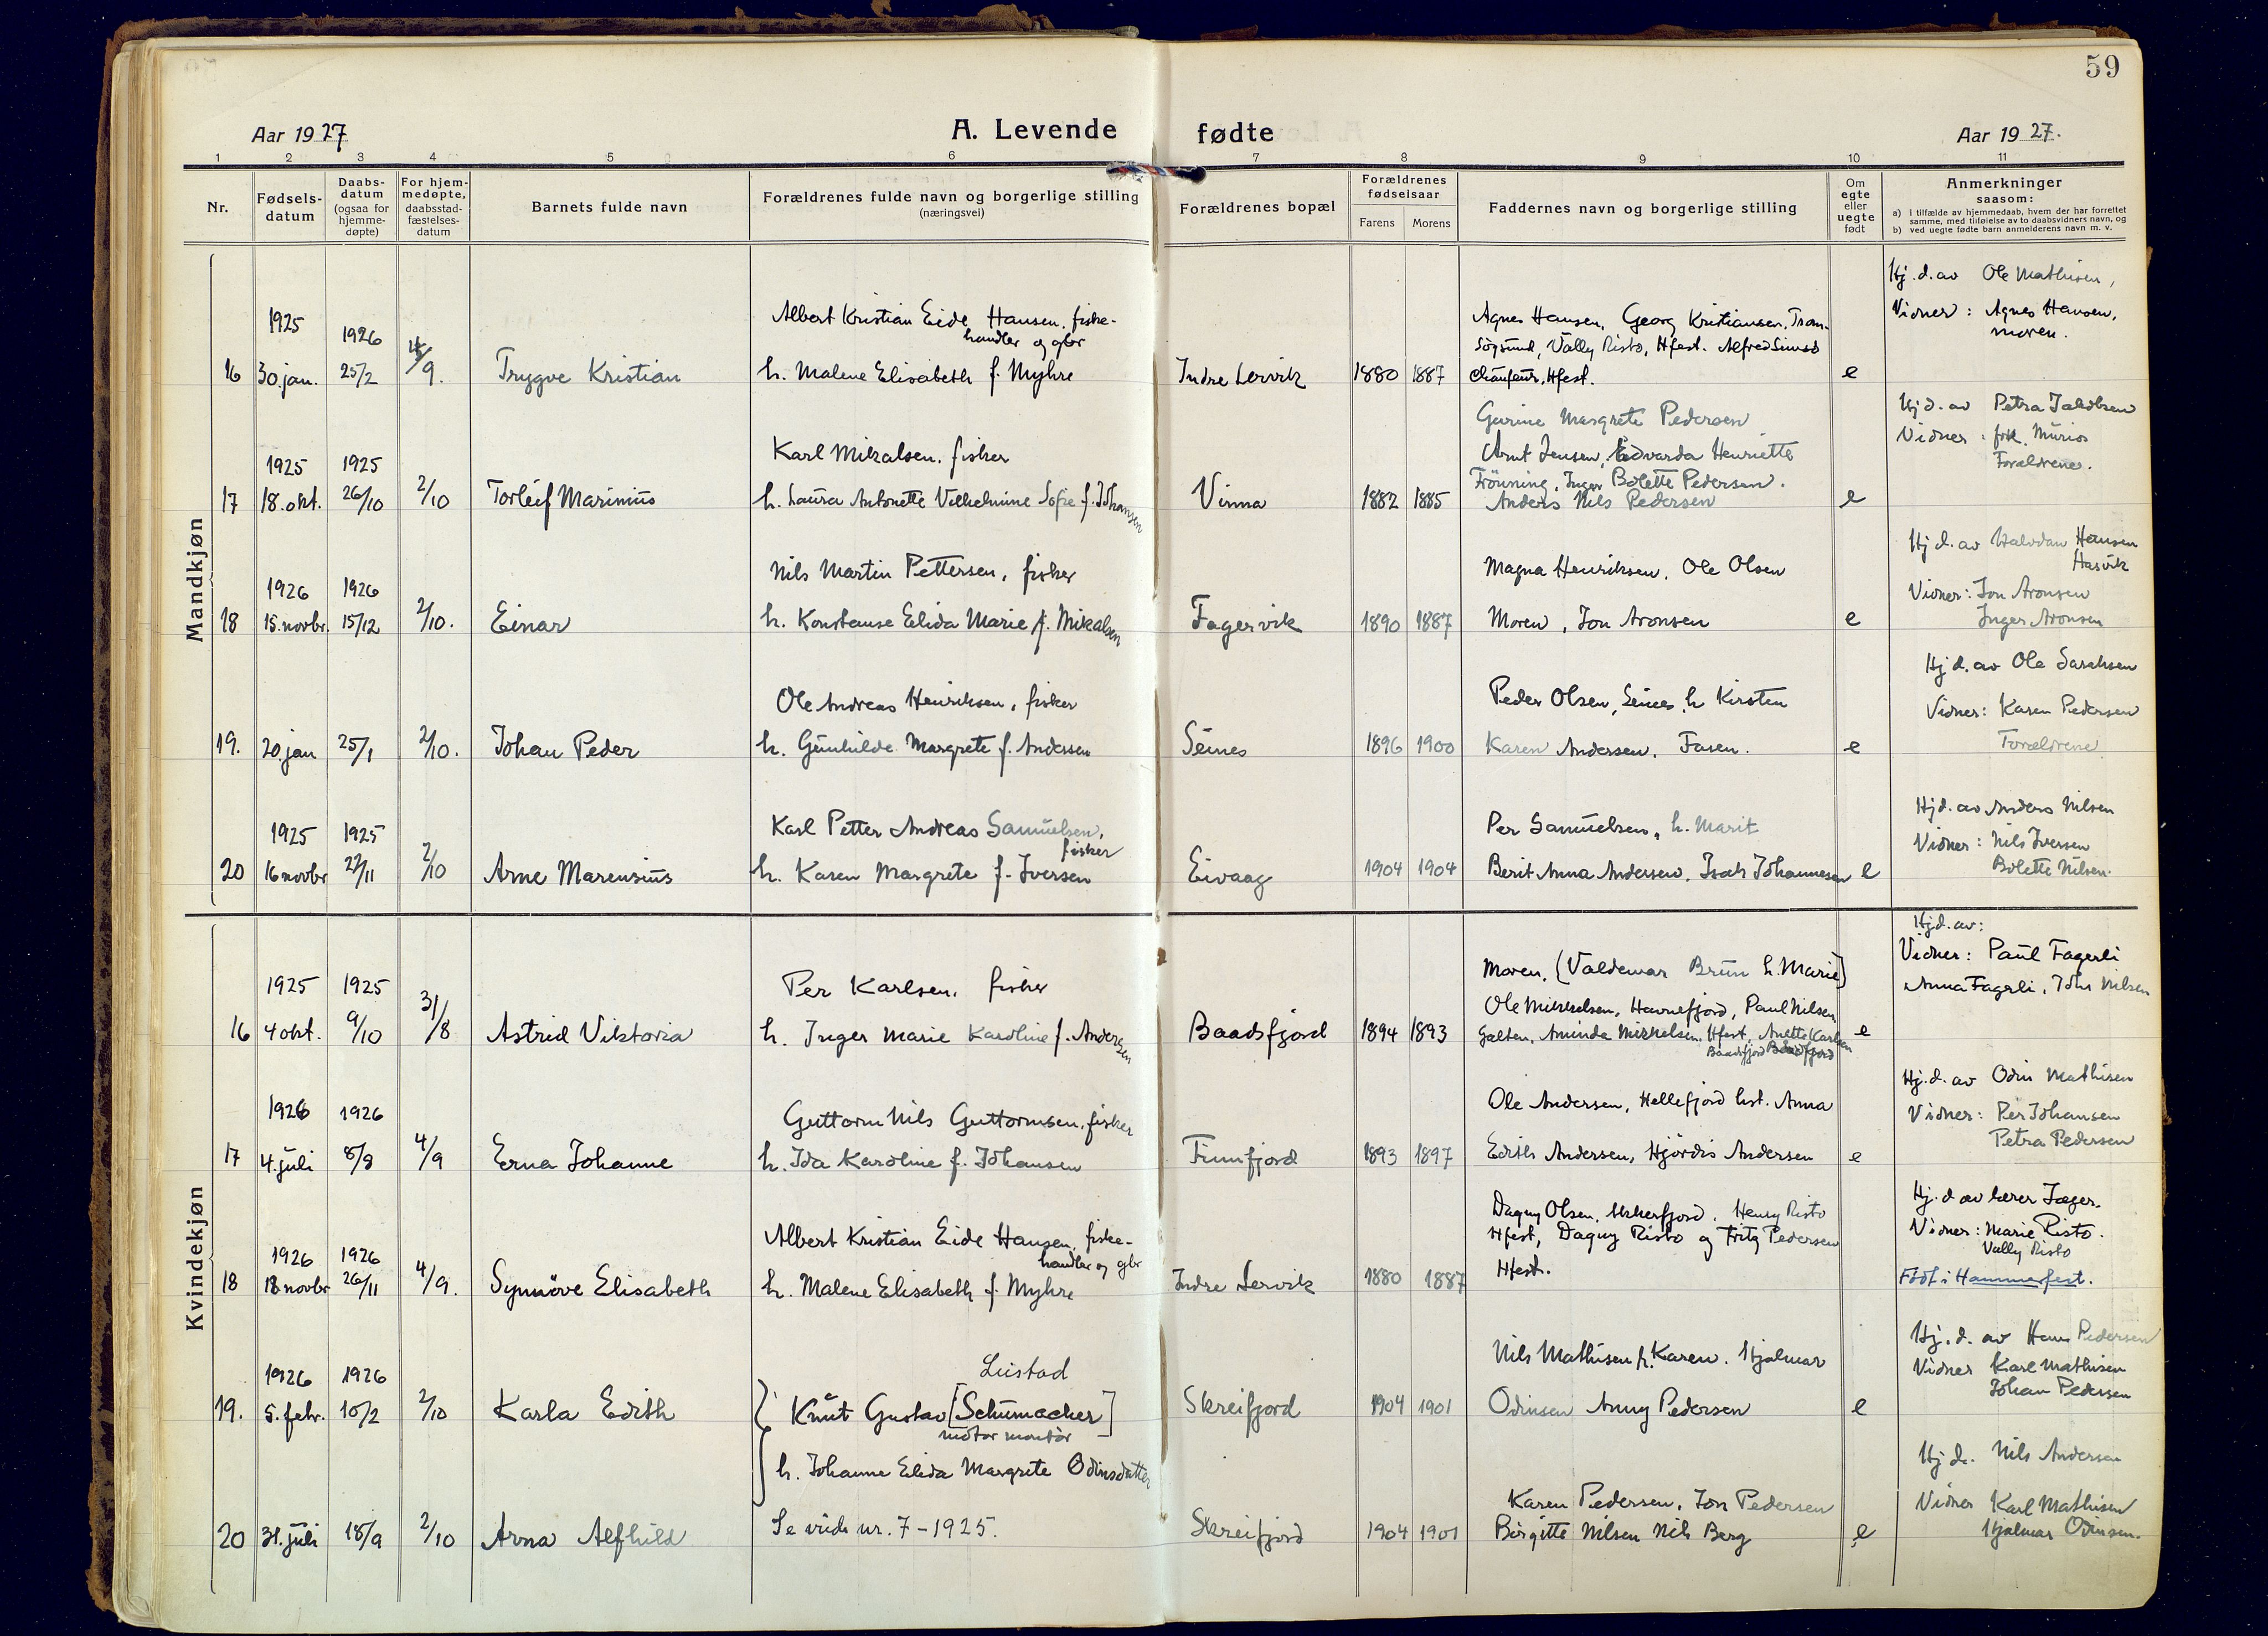 59
Aar 1927
A. Levende fødte
Aar 1927.
1 2 3 4 5 6 7 8 9 10 11
Nr.
Fødsels-
datum
Daabs-
datum
(ogsaa for
hjemme-
døpte)
For hjem-
medøpte,
daabsstad-
fæstelses-
datum
Barnets fulde navn
Forældrenes fulde navn og borgerlige stilling
(næringsvei)
Forældrenes bopæl
Forældrenes
fødselsaar
Farens Morens
Faddernes navn og borgerlige stilling
Om
egte
eller
uegte
født
Anmerkninger
saasom:
a) I tilfælde av hjemmedaab, hvem der har forrettet
samme, med tilføielse av to daabsvidners navn, og
b) ved uegte fødte barn anmelderens navn m. v.
Mandkjøn
16
1925
30. jan.
1926
25/2
/9.
Trygve Kristian
Albert Kristian Eide Hansen, fiske-
handler og gbr
h. Malene Elisabeth f. Myhre
Indre Lervik
1880 1887
Agnes Hansen, Georg Kristiansen, Trom-
søysund, Vally Risto, Hfest. Alfred Simsø
Chaufeur, Hfest.
e
Hj. d. av Ole Mathisen,
Vidner: Agnes Hansen,
moren.
17
1925
18. okt.
1925
26/10
2/10
Torleif Marinius
Karl Mikalsen, fisker
h. Laura Antonette Vilhelmine Sofie f. Johansen
Vinna
1882 1885
Gurine Margrete Pedersen
Arnt Jensen, Edvarda Henriette
Frönning, Inger Bolette Pedersen.
Anders Nils Pedersen
e
Hj d. av Petra Jakobsen
Vidner: frk. Murios
Forældrene.
18
1926
15. novbr.
1926
15/12
2/10.
Einar
Nils Martin Pettersen, fisker
h. Konstanse Elida Marie f. Mikalsen
Fagervik
1890 1887
Magna Henriksen. Ole Olsen
Moren, Jon Aronsen
e
Hj d. av Halvdan Hansen
Hasvik
Vidner: Jon Aronsen
Inger Aronsen
19.
20. jan
25/1
2/10.
Johan Peder
Ole Andreas Henriksen, fisker
h. Gunhilde Margrete f. Andersen
Seines
1896 1900
Peder Olsen, Seines, h. Kirsten
Karen Andersen. Faren.
e
Hj d. av Ole Sarahsen
Vidner: Karen Pedersen
Forældrene
20
1925
16 novbr
1925
22/11
2/10
Arne Marensius
Karl Petter Andreas Samuelsen,
fisker
h. Karen Margrete f. Iversen
Eivaag
1904 1904
Per Samuelsen, h. Marit
Berit Anna Andersen, Isak Johannesen
e
Hj d. av Anders Nilsen
Vidner: Nils Iversen
Bolette Nilsen.
Kvindekjøn
16
1925
4 okt.
1925
9/10
31/8
Astrid Viktoria
Per Karlsen, fisker
h. Inger Marie Karoline f. Andersen
Baadsfjord
1894 1893
Moren, (Valdemar Brun h. Marie)
Ole Mikkelsen, Havnefjord, Paul Nilsen
Galten, Aminda Mikkelsen, Hfest, Anette Karlsen
Baadsfjord Baadsfjord
e
Hj d. av:
Vidner: Paul Fagerli
Anna Fagerli, Johs Nilsen
17
1926
4. juli
1926
8/8
4/9
Erna Johanne
Guttorm Nils Guttormsen, fisker
h. Ida Karoline f. Johansen
Finnfjord
1893 1897
Ole Andersen, Hellefjord hst. Anna
Edith Andersen, Hjördis Andersen
e
Hj. d. av Odin Mathisen
Vidner: Per Johansen
Petra Pedersen
18
1926
18 novbr
1926
26/11
4/9.
Synnöve Elisabeth
Albert Kristian Eide Hansen, fiske-
handler og gbr
h. Malene Elisabeth f. Myhre
Indre Lervik
1880 1887
Dagny Olsen, Akkerfjord, Henry Risto
Hfest, Dagny Risto og Fritz Pedersen
Hfest.
Hj. d av lærer Jæger.
Vidner: Marie Risto.
Vally Risto
Født i Hammerfest.
19.
1926
5. febr.
1926
10/2
2/10
Karla Edith
Listad
Knut Gustav [Schumacher]
motor montør
h. Johanne Elida Margrete Odinsdatter
Skreifjord
1904 1901
Nils Mathisen h. Karen. Hjalmar
Odinsen Anny Pedersen
e
Hj. d. av Hans Pedersen
Vidner Karl Mathisen
Johan Pedersen
20
31. juli
18/9
2/10
Arna Alfhild
Se vide nr. 7 - 1925.
Skreifjord
1904 1901
Karen Pedersen, Jon Pedersen
Birgitte Nilsen Nils Berg
e
Hj d. Nils Andersen
Vidner Karl Mathisen
Hjalmar Odinsen.